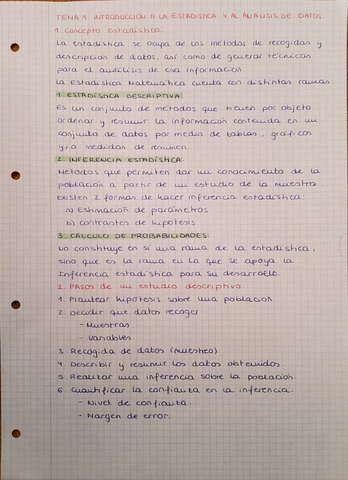 TEMA 1. INTRODUCCIÓN A LA ESTADÍSTICA Y AL ANÁLISIS DE DATOS
1. Concepto estadística.
La estadística se ocupa de los métodos de recogidas y
descripción de datos, así como de generar técnicas
para el análisis de esa información
La Estadística Matemática cuenta con distintas ramas
1. ESTADÍSTICA DESCRIPTIVA:
Es un conjunto de métodos que tienen por objeto
ordenar y resumir la información contenida en un
conjunto de datos por medio de tablas, gráficos
y/o medidas de resumen.
2. INFERENCIA ESTADÍSTICA:
Métodos que permiten dar un conocimiento de la
población a partir de un estudio de la muestra
Existen 2 formas de hacer inferencia estadística:
a) Estimación de parámetros
b) contrastes de hipótesis
3. CÁLCULO DE PROBABILIDADES:
No constituye en sí una rama de la estadística,
sino que es la rama en la que se apoya la
Inferencia estadística para su desarrollo.
2. Pasos de un estudio descriptivo
1. Plantear hipótesis sobre una población
2. Decidir que datos recoger
- Muestras
- Variables.
3. Recogida de datos (muestreo)
4. Describir y resumir los datos obtenidos.
5. Realizar una inferencia sobre la población.
6. Cuantificar la confianza en la inferencia.
- Nivel de confianza.
- Margen de error.